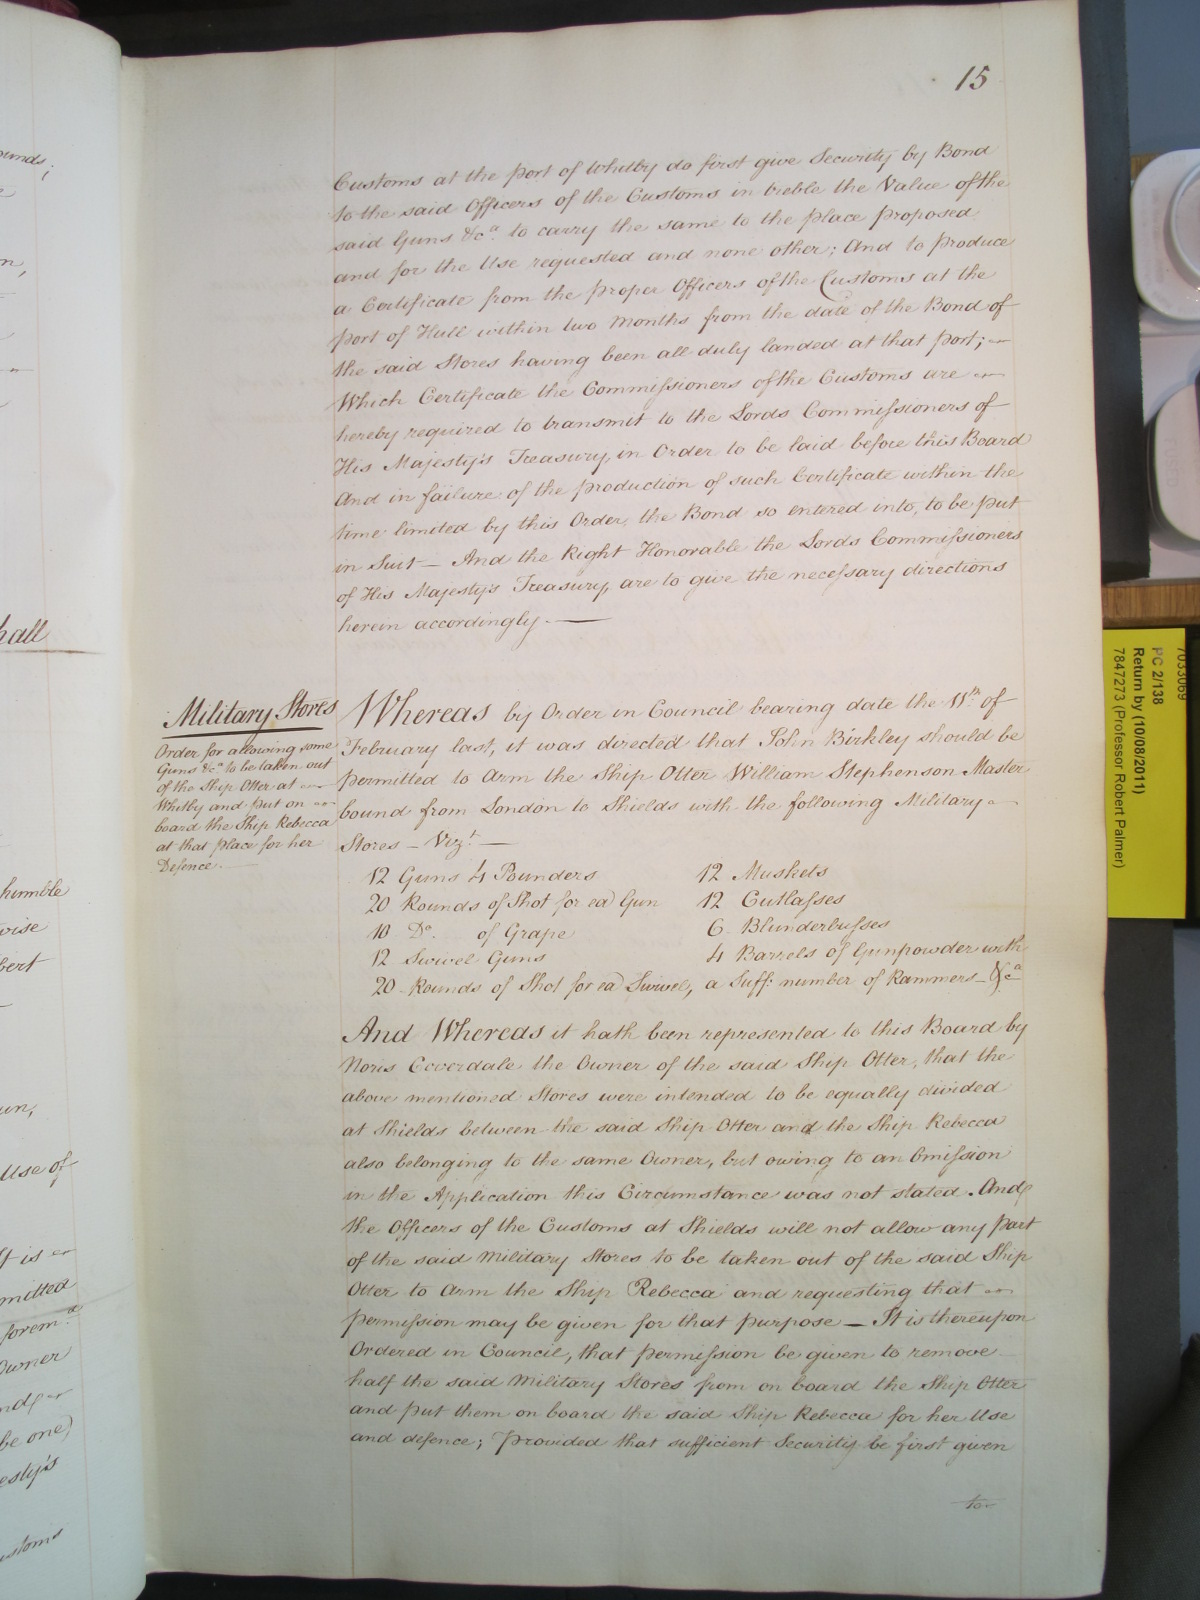 15
Customs at the port of Whitby do first give Security by Bond
to the said Officers of the Customs in treble the Value of the
said Guns &cª. to carry the same to the place proposed
and for the Use requested and none other; And to produce
a Certificate from the proper Officers of the Customs at the
port of Hull within two Months from the date of the Bond of
the said Stores having been all duly landed at that port;
Which Certificate the Commissioners of the Customs are
hereby required to transmit to the Lords Commissioners of
His Majesty's Treasury, in Order to be laid before this Board
And in failure of the production of such Certificate within the
time limited by this Order, the Bond so entered into, to be put
in Suit — And the Right Honorable the Lords Commissioners
of His Majesty's Treasury, are to give the necessary directions
herein accordingly. —
Military Stores
Order for allowing some
Guns &cª to be taken out
of the Ship Otter at
Whitby and put on
board the Ship Rebecca
at that place for her
Defence.
Whereas by Order in Council bearing date the 11th of
February last, it was directed that John Birkley should be
permitted to Arm the Ship Otter William Stephenson Master
bound from London to Shields with the following Military
Stores — Vizt. —
12 Guns 4 Pounders 12 Muskets
20 Rounds of Shot for ea Gun 12 Cutlasses
10 Do. of Grape 6 Blunderbusses
12 Swivel Guns 4 Barrels of Gunpowder with
20 Rounds of Shot for ea Swivel, a Suff: number of Rammers &cª
And Whereas it hath been represented to this Board by
Noris Coverdale the Owner of the said Ship Otter, that the
above mentioned Stores were intended to be equally divided
at Shields between the said Ship Otter and the Ship Rebecca
also belonging to the same Owner, but owing to an Omission
in the Application this Circumstance was not stated. And
the Officers of the Customs at Shields will not allow any Part
of the said Military Stores to be taken out of the said Ship
Otter to Arm the Ship Rebecca and requesting that
permission may be given for that purpose — It is thereupon
Ordered in Council, that permission be given to remove
half the said Military Stores from on board the Ship Otter
and put them on board the said Ship Rebecca for her Use
and defence; Provided that sufficient Security be first given
to
7033069
PC 2/138
Return by (10/08/2011)
7847273 (Professor Robert Palmer)
hall
humble
wise
bert
Use of
it is
mitted
Owner
be one)
esty's
ustoms